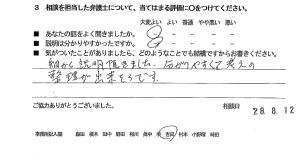 3 相談を担当した弁護士について、当てはまる評価に○をつけてください。
大変よい よい 普通 やや悪い 悪い
■ あなたの話をよく聞きましたか。
■ 説明は分かりやすかったですか。
■ 気がついたことがありましたら、どのようなことでも結構ですからお書きください。
細かく説明頂きました。分かりやすくて考えの
整理が出来そうです。
ご協力ありがとうございました。
相談日 28.8.12